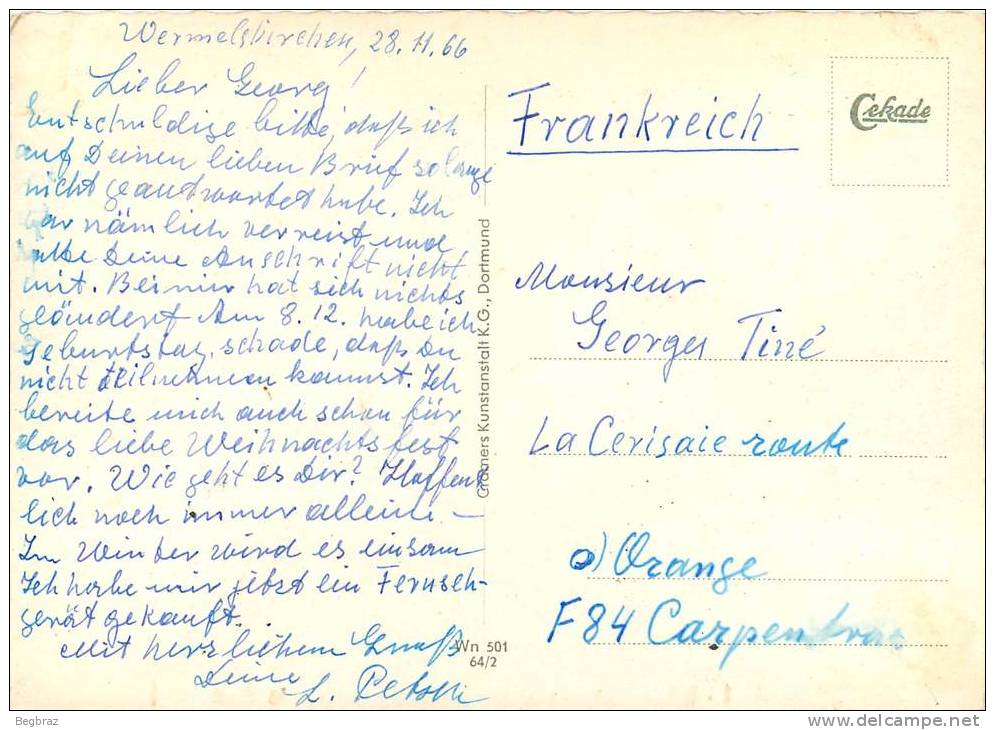 Wermelskirchen, 28.11.66
Lieber Georg!
Entschuldige bitte, daß ich
auf Deinen lieben Brief solange
nicht geantwortet habe. Ich
war nämlich verreist und
hatte Deine Anschrift nicht
mit. Bei mir hat sich nichts
geändert Am 8.12. habe ich
Geburtstag, schade, daß Du
nicht teilnehmen kannst. Ich
bereite mich auch schon für
das liebe Weihnachtsfest
vor. Wie geht es Dir? Hoffent
lich noch immer allein –
Im Winter wird es einsam
Ich habe mir jetzt ein Fernseh-
gerät gekauft.
Mit herzlichem Gruß
Deine
L.
Grafners Kunstanstalt K.G., Dortmund
Wn 501
64/2
Cekade
Frankreich
Monsieur
Georges Tiné
La Cerisaie route
d'Orange
F84 Carpentras
Begbraz
www.delcampe.net